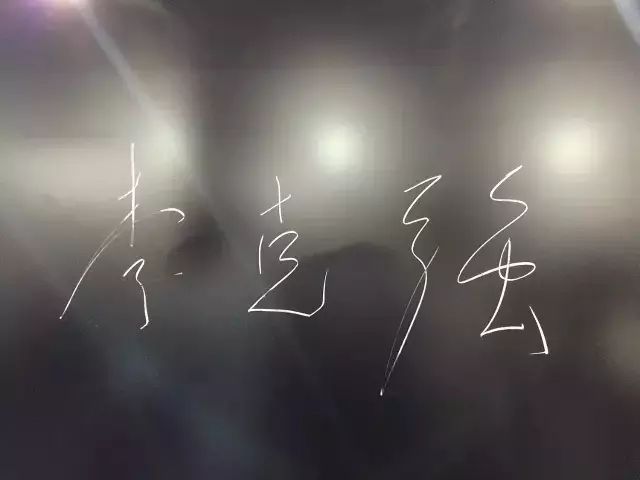 李克强